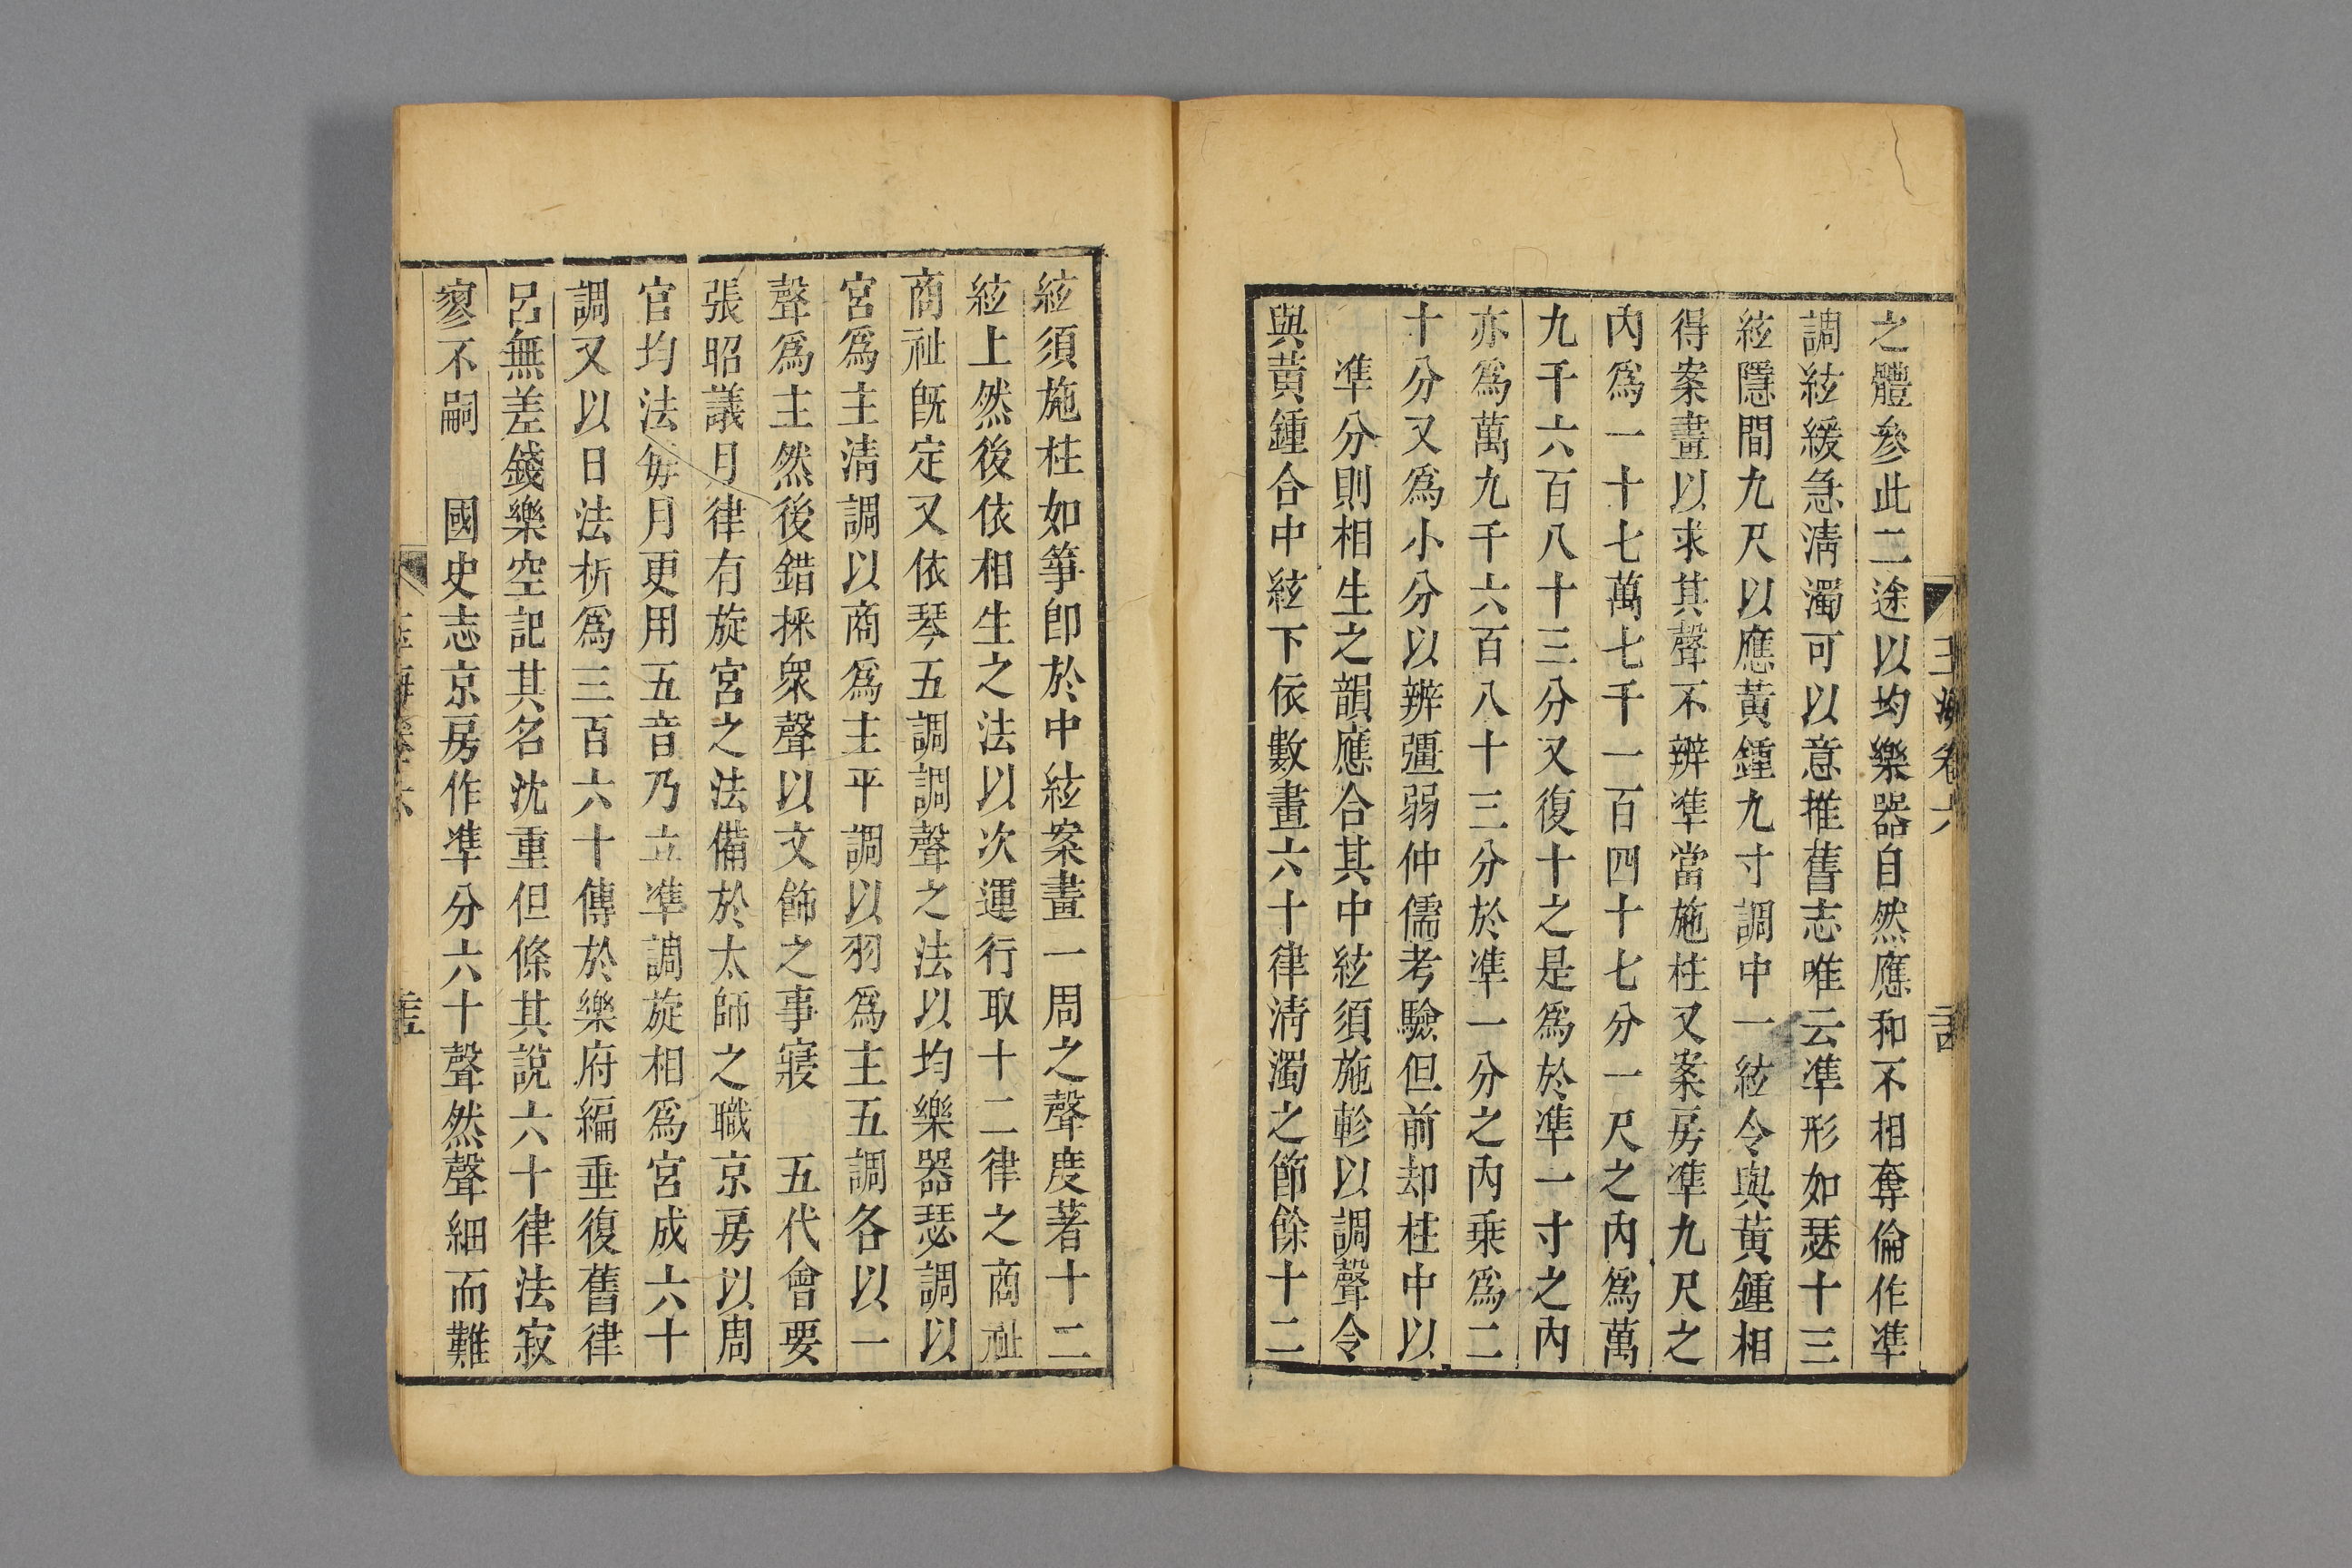 玉海卷六
之體參此二途以均樂器自然應和不相奪倫作凖
調絃緩急淸濁可以意推舊志唯云凖形如瑟十三
絃隱間九尺以應黃鍾九寸調中一絃令與黃鍾相
得案畫以求其聲不辨凖當施柱又案房凖九尺之
內爲一十七萬七千一百四十七分一尺之內爲萬
九千六百八十三分又復十之是爲於凖一寸之內
亦爲萬九千六百八十三分於凖一分之內乗爲二
十分又爲小分以辨彊弱仲儒考驗但前却柱中以
凖分則相生之韻應合其中絃須施軫以調聲令
與黃鍾合中絃下依數畫六十律淸濁之節餘十二
絃須施柱如箏卽於中絃案畫一周之聲度著十二
絃上然後依相生之法以次運行取十二律之商祉
商祉旣定又依琴五調調聲之法以均樂器瑟調以
宮爲主淸調以商爲主平調以羽爲主五調各以一
聲爲主然後錯採衆聲以文飾之事寢 五代會要
張昭議月律有旋宮之法備於太師之職京房以周
官均法每月更用五音乃立凖調旋相爲宮成六十
調又以日法析爲三百六十傳於樂府編垂復舊律
呂無差錢樂空記其名沈重但條其說六十律法寂
寥不嗣 國史志京房作凖分六十聲然聲細而難